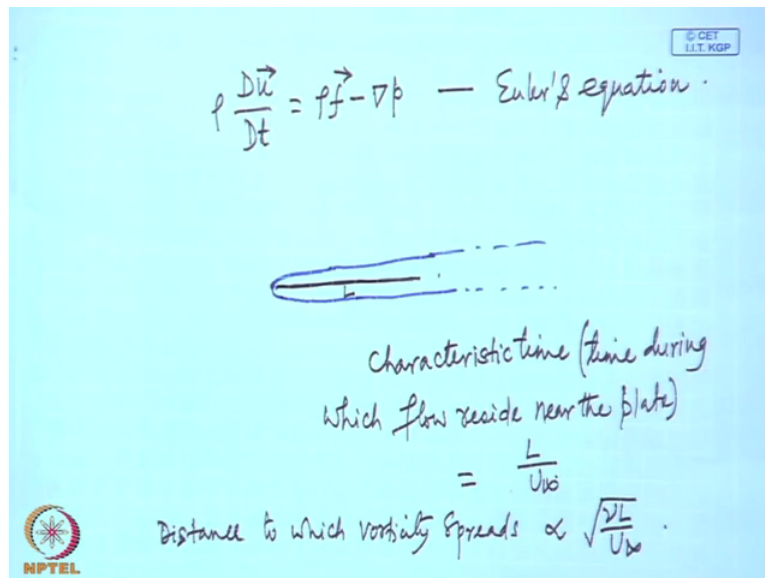 © CET
I.I.T. KGP
ρ Du⃗/Dt = ρf⃗ - ∇p — Euler's equation.
L
Characteristic time (time during
which flow reside near the plate)
= L/U∞
Distance to which vorticity spreads ∝ √(νL/U∞).
NPTEL